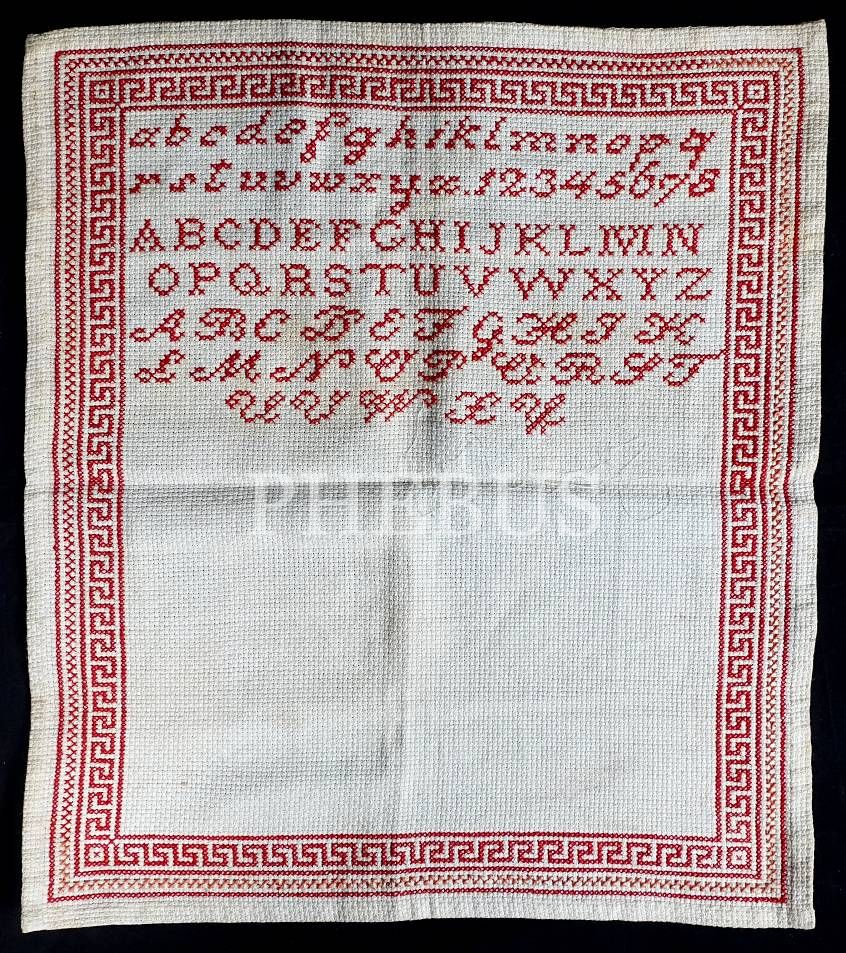 a b c d e f g h i k l m n o p q
r s t u v w x y z . 1 2 3 4 5 6 7 8
A B C D E F G H I J K L M N
O P Q R S T U V W X Y Z
A B C D E F G H I K
L M N O P Q R S T
U V W X Y
PHEBUS